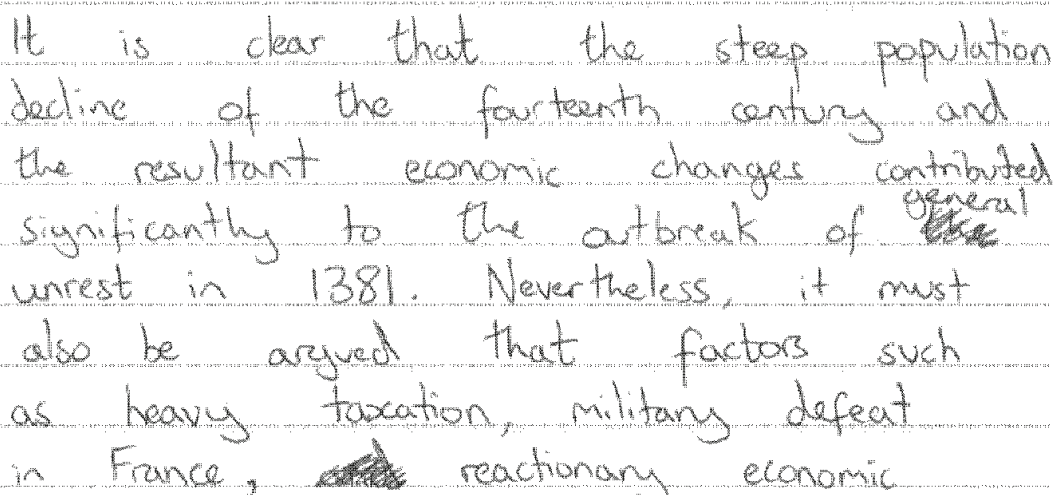 It is clear that the steep population
decline of the fourteenth century and
the resultant economic changes contributed
significantly to the outbreak of general
unrest in 1381. Nevertheless, it must
also be argued that factors such
as heavy taxation, military defeat
in France, reactionary economic